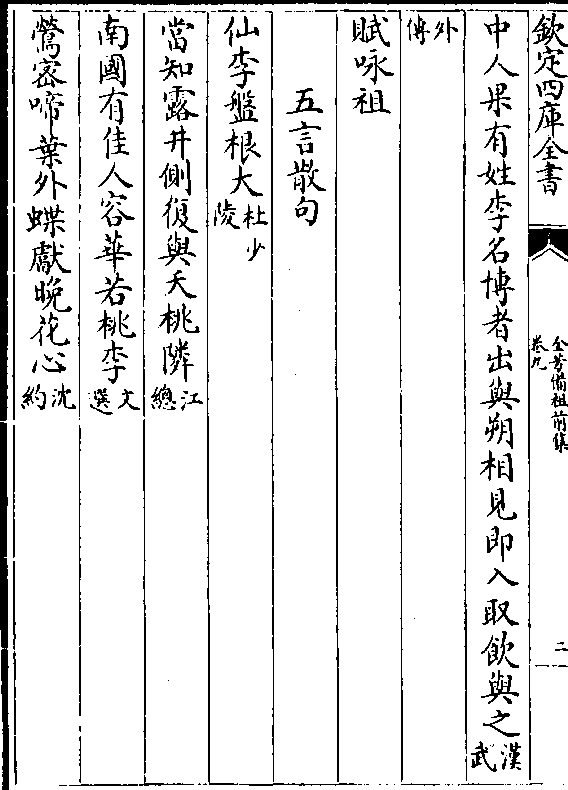 欽定四庫全書
全芳備祖前集
卷九
二
中人果有姓李名博者出與朔相見即入取飲與之漢武
外傳
賦咏祖
五言散句
仙李盤根大杜少陵
當知露井側復與夭桃隣江總
南國有佳人容華若桃李文選
鶯密啼葉外蝶戲晚花心沈約